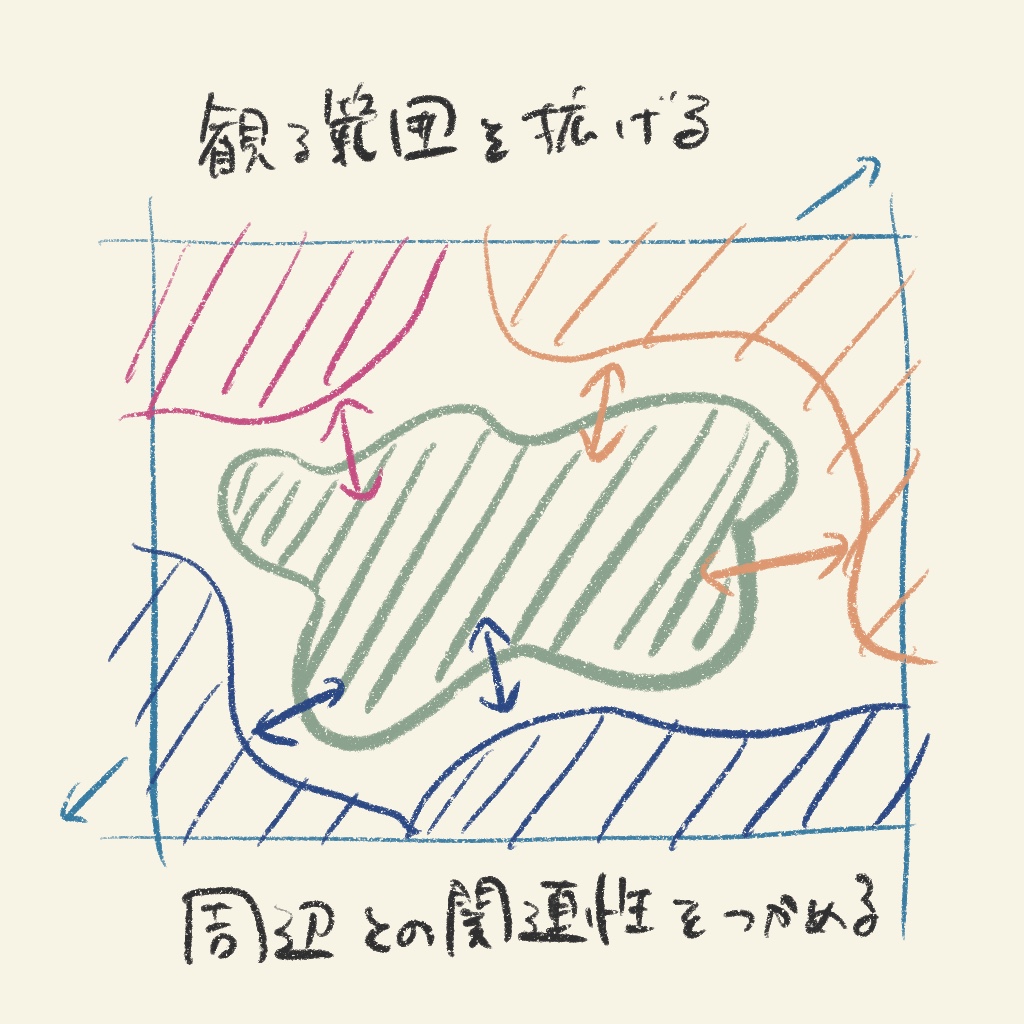 観る範囲を拡げる
周辺との関連性をつかめる